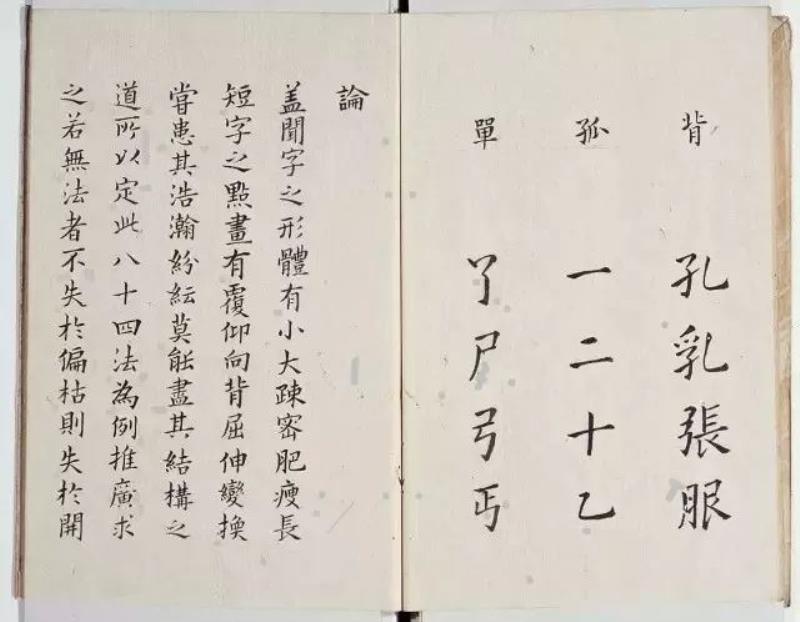 背 孔乳張服
孤 一二十乙
單 丫尸弓丏
論
盖聞字之形體有小大疎密肥瘦長
短字之點畫有覆仰向背屈伸變換
嘗患其浩瀚紛紜莫能盡其結構之
道所以定此八十四法為例推廣求
之若無法者不失於偏枯則失於開